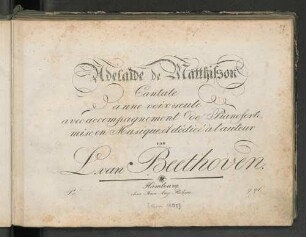 Adelaide de Matthisson
Cantate
a une voix seule
avec accompagnement de Pianoforte,
mise en Musique et dediée à l'auteur
PAR
L. van Beethoven.
Hambourg
chez Jean Aug. Böhme.